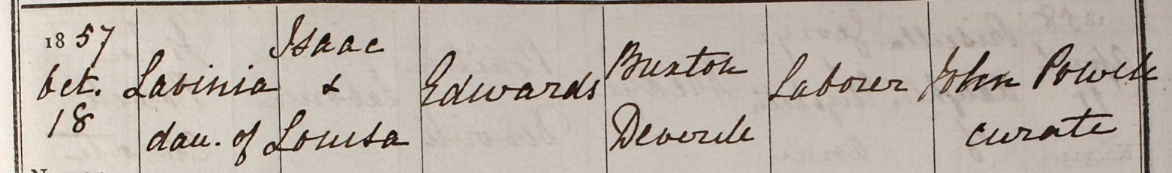 1857
Oct.
18
Lavinia
dau. of
Isaac
&
Louisa
Edwards
Burton
Deverell
Laborer
John Powell
curate